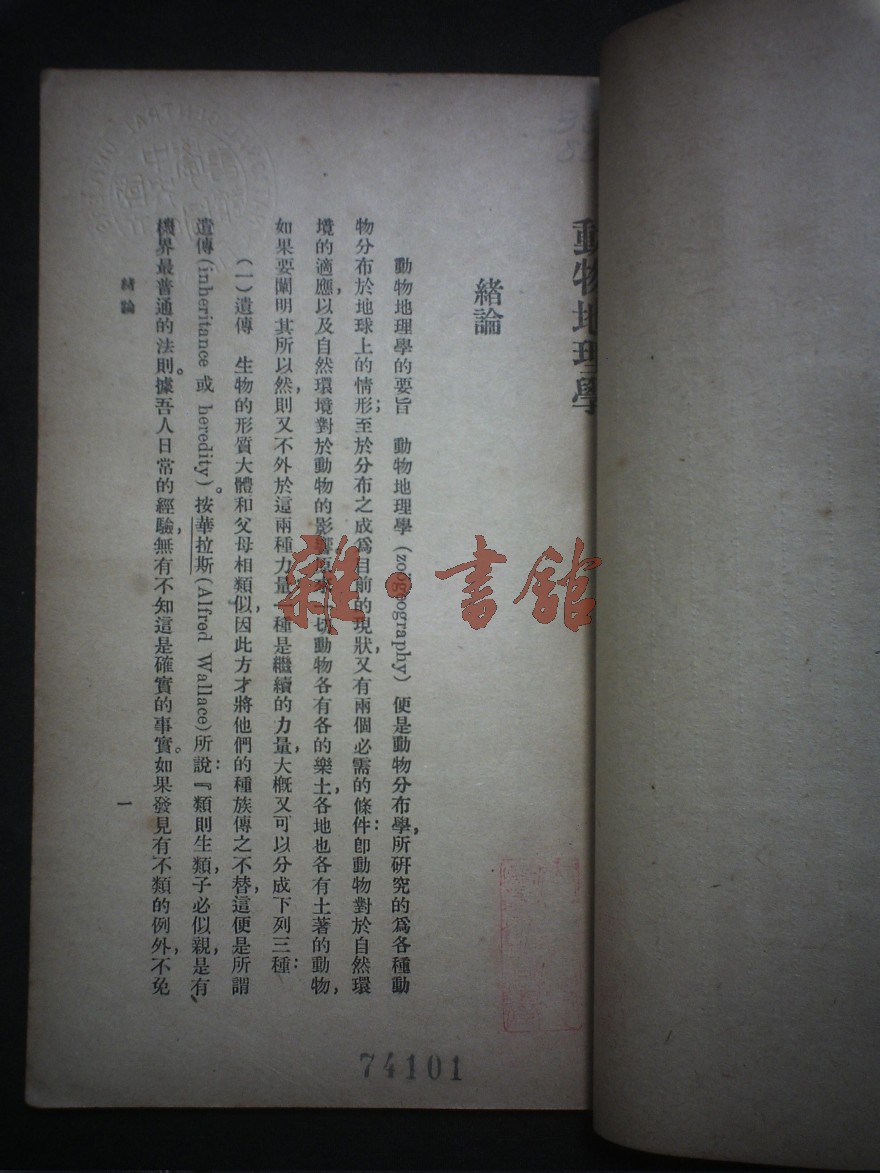 動物地理學
緒論
動物地理學的要旨　動物地理學（zoögeography）便是動物分布學，所研究的爲各種動
物分布於地球上的情形；至於分布之成爲目前的現狀，又有兩個必需的條件：卽動物對於自然環
境的適應，以及自然環境對於動物的影響。原來一切動物各有各的樂土，各地也各有土著的動物，
如果要闡明其所以然，則又不外於這兩種力量。一種是繼續的力量，大概又可以分成下列三種：
（一）遺傳　生物的形質大體和父母相類似，因此方才將他們的種族傳之不替，這便是所謂
遺傳（inheritance 或 heredity）。按華拉斯（Alfred Wallace）所說：『類則生類，子必似親，是有
機界最普通的法則。據吾人日常的經驗，無有不知這是確實的事實。如果發見有不類的例外，不免
緒論
一
74101
雜·書館